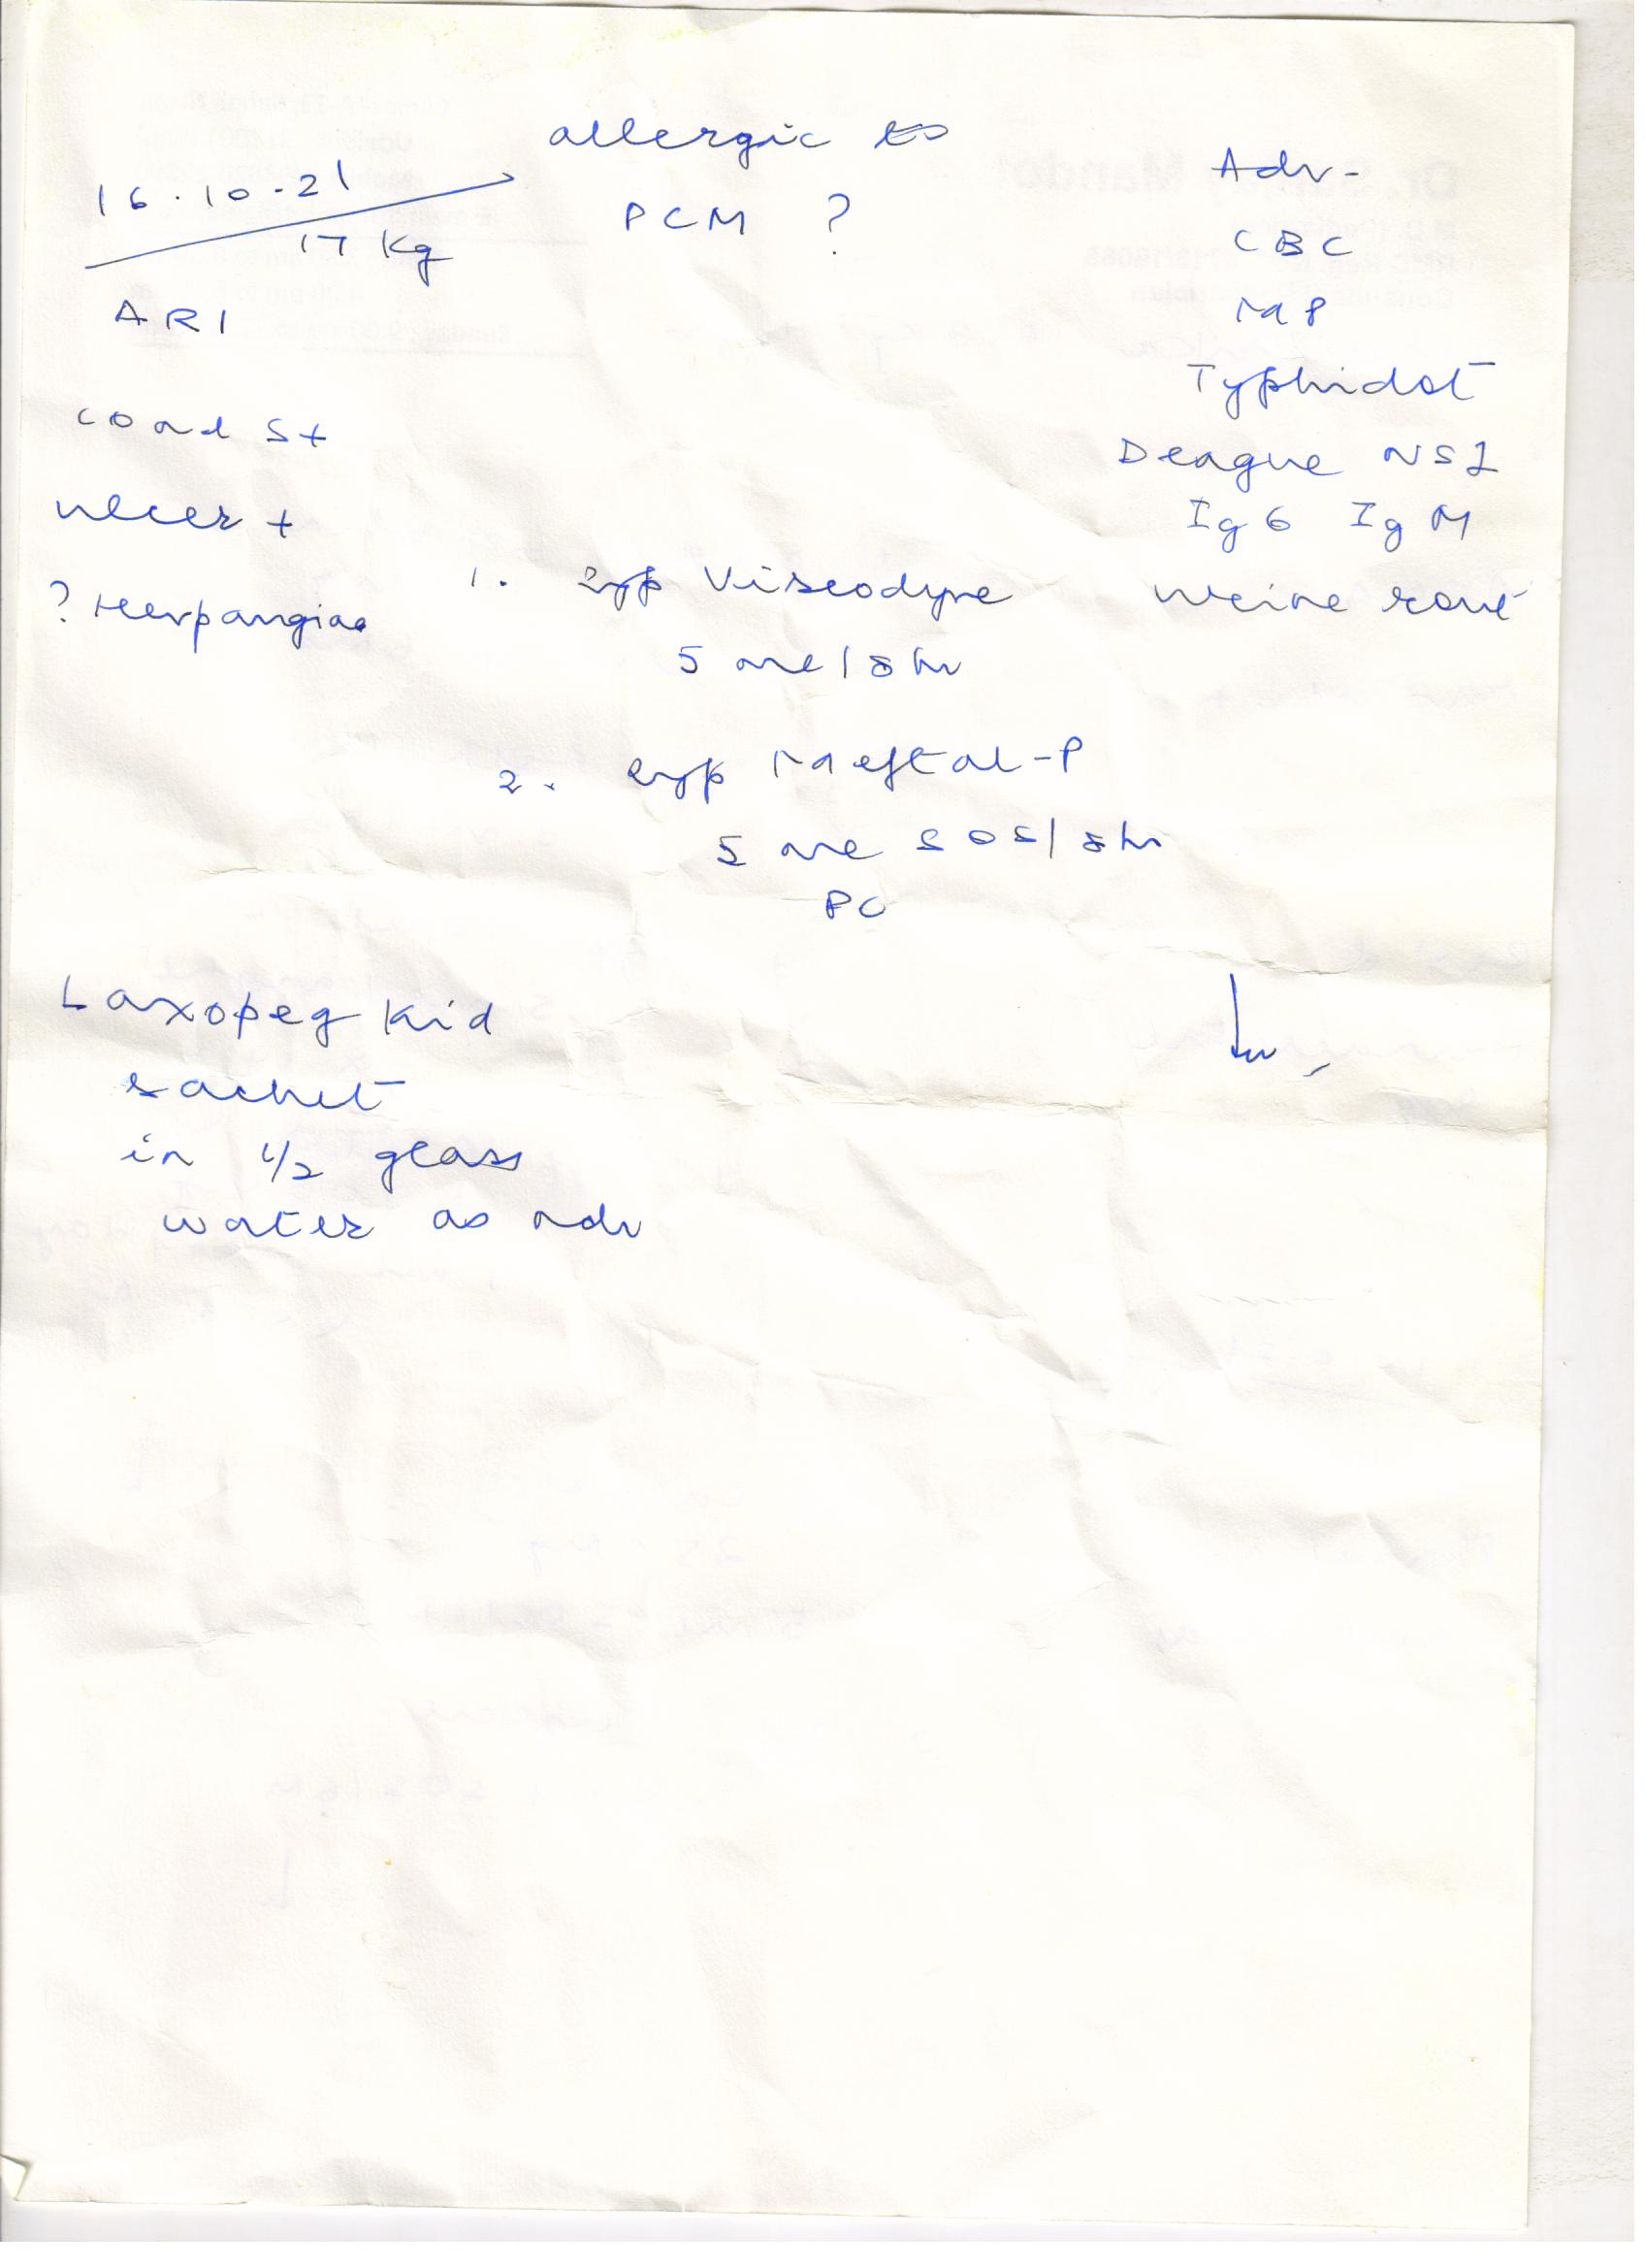 allergic to
PCM ?
16.10.21
17 Kg
ARI
Coad S+
ulcer +
? Herpangiaa
Adv-
CBC
MP
Typhidot
Deague NS1
IgG IgM
Urine rout
1. Syp Viscodyne
5 ml / 8 hr
2. Syp Meftal-P
5 ml SOS / 8 hr
PC
Laxopeg Kid
sachet
in 1/2 glass
water as adv